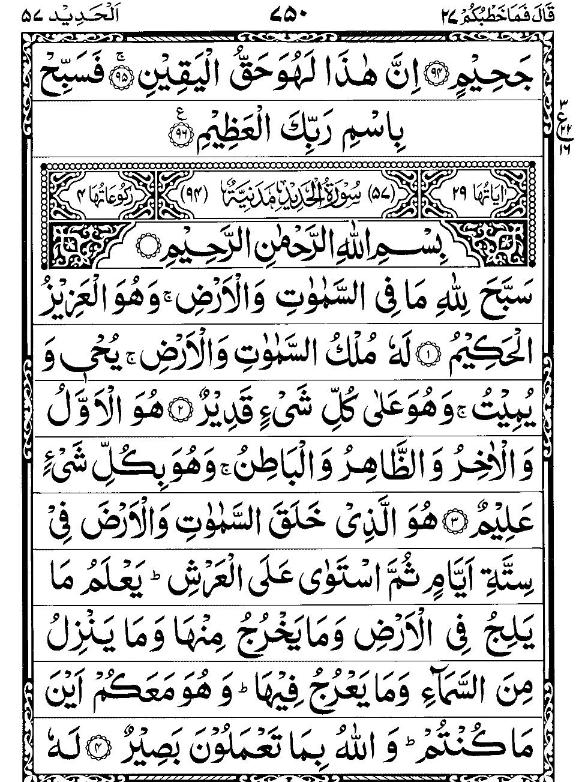 قَالَ فَمَا خَطْبُكُمْ ٢٧ ٧٥٠ اَلْحَدِيْد ٥٧
جَحِيْمٍ ﴿٩٤﴾ اِنَّ هٰذَا لَهُوَ حَقُّ الْيَقِيْنِ ﴿٩٥﴾ۚ فَسَبِّحْ
بِاسْمِ رَبِّكَ الْعَظِيْمِ ﴿٩٦﴾ ع
٣ ع ٢٢ ١٦
اٰيَاتُهَا ٢٩ (٥٧) سُوْرَةُ الْحَدِيْدِ مَدَنِيَّةٌ (٩٤) رُكُوْعَاتُهَا ٤
بِسْمِ اللّٰهِ الرَّحْمٰنِ الرَّحِيْمِ
سَبَّحَ لِلّٰهِ مَا فِي السَّمٰوٰتِ وَالْاَرْضِ ۚ وَهُوَ الْعَزِيْزُ
الْحَكِيْمُ ﴿١﴾ لَهٗ مُلْكُ السَّمٰوٰتِ وَالْاَرْضِ ۚ يُحْيٖ وَ
يُمِيْتُ ۚ وَهُوَ عَلٰى كُلِّ شَيْءٍ قَدِيْرٌ ﴿٢﴾ هُوَ الْاَوَّلُ
وَالْاٰخِرُ وَالظَّاهِرُ وَالْبَاطِنُ ۚ وَهُوَ بِكُلِّ شَيْءٍ
عَلِيْمٌ ﴿٣﴾ هُوَ الَّذِيْ خَلَقَ السَّمٰوٰتِ وَالْاَرْضَ فِيْ
سِتَّةِ اَيَّامٍ ثُمَّ اسْتَوٰى عَلَى الْعَرْشِ ؕ يَعْلَمُ مَا
يَلِجُ فِي الْاَرْضِ وَمَا يَخْرُجُ مِنْهَا وَمَا يَنْزِلُ
مِنَ السَّمَآءِ وَمَا يَعْرُجُ فِيْهَا ؕ وَهُوَ مَعَكُمْ اَيْنَ
مَا كُنْتُمْ ؕ وَاللّٰهُ بِمَا تَعْمَلُوْنَ بَصِيْرٌ ﴿٤﴾ لَهٗ